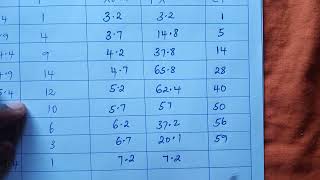 1 3.2 3.2 1
9 4 3.7 14.8 5
.4 9 4.2 37.8 14
.9 14 4.7 65.8 28
5.4 12 5.2 62.4 40
10 5.7 57 50
6 6.2 37.2 56
3 6.7 20.1 59
1 7.2 7.2